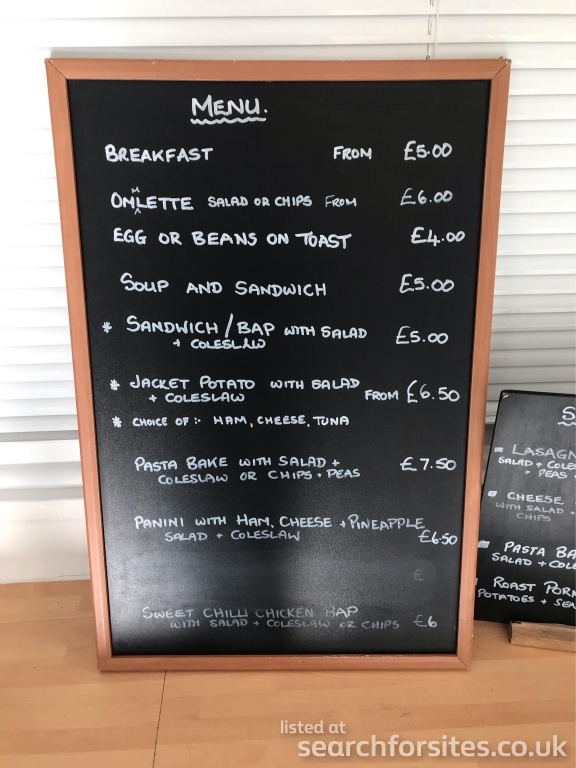 MENU.
BREAKFAST FROM £5.00
OMLETTE SALAD OR CHIPS FROM £6.00
EGG OR BEANS ON TOAST £4.00
SOUP AND SANDWICH £5.00
* SANDWICH / BAP WITH SALAD £5.00
+ COLESLAW
* JACKET POTATO WITH SALAD
+ COLESLAW FROM £6.50
* CHOICE OF :- HAM, CHEESE, TUNA
PASTA BAKE WITH SALAD + £7.50
COLESLAW OR CHIPS + PEAS
PANINI WITH HAM, CHEESE + PINEAPPLE
SALAD + COLESLAW £6.50
£
SWEET CHILLI CHICKEN BAP
WITH SALAD + COLESLAW OR CHIPS £6
S
LASAGN
SALAD + COLES
+ PEAS +
CHEESE
WITH SALAD +
CHIPS
PASTA BA
SALAD + COLE
ROAST PORK
POTATOES + SEA
listed at
searchforsites.co.uk